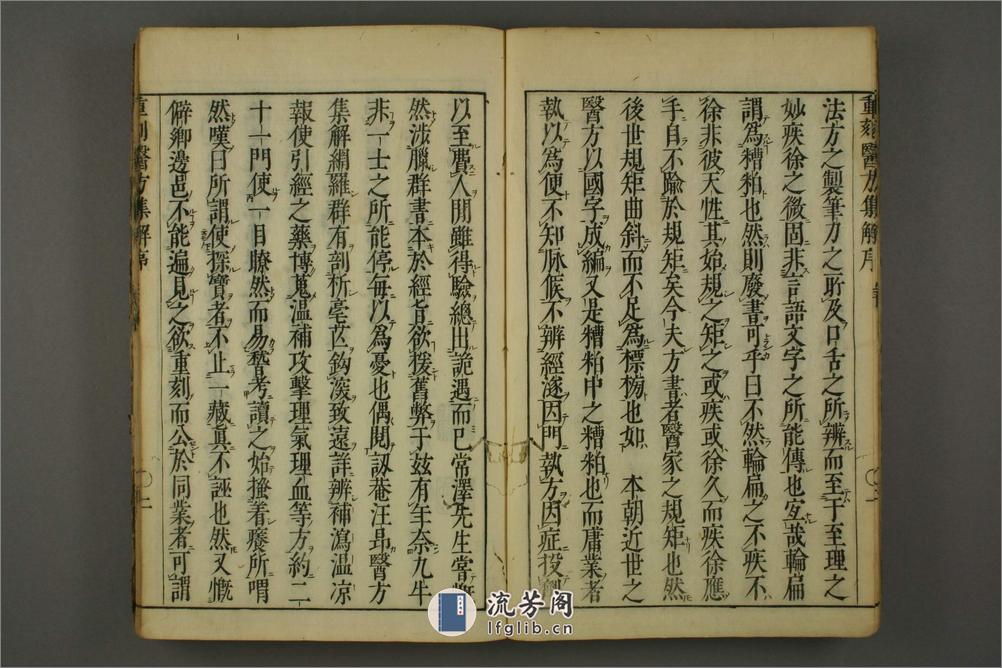 重刻醫方集解序
法方之製筆力之所及口舌之所辨而至于至理之
妙疾徐之微固非言語文字之所能傳也宜哉輪扁
謂為糟粕也然則廢書可乎曰不然輪扁之不疾不
徐非彼天性其始規之矩之或疾或徐久而疾徐應
手自不踰於規矩矣今夫方書者醫家之規矩也然
後世規矩曲斜而不足為標榜也如 本朝近世之
醫方以國字成編又是糟粕中之糟粕也而庸業者
執以為便不知脉候不辨經邃因門執方因症投劑
以至費人間雖得驗總出詭遇而已常澤先生嘗慨
然涉臘群書本於經旨欲援舊弊于玆有年奈九牛
非一士之所能停每以為憂也偶閱訒菴汪昂醫方
集解網羅群有剖析毫芒鈎深致遠詳辨補瀉温凉
報使引經之藥博蒐温補攻擊理氣理血等方約二
十一門使一目瞭然而易稽考讀之如搔著癢所喟
然嘆曰所謂使探寶者不止一藏真不誣也然又慨
僻鄉邊邑不能遍見之欲重刻而公於同業者可謂
重刻醫方集解序
二
流芳阁
lfglib.cn